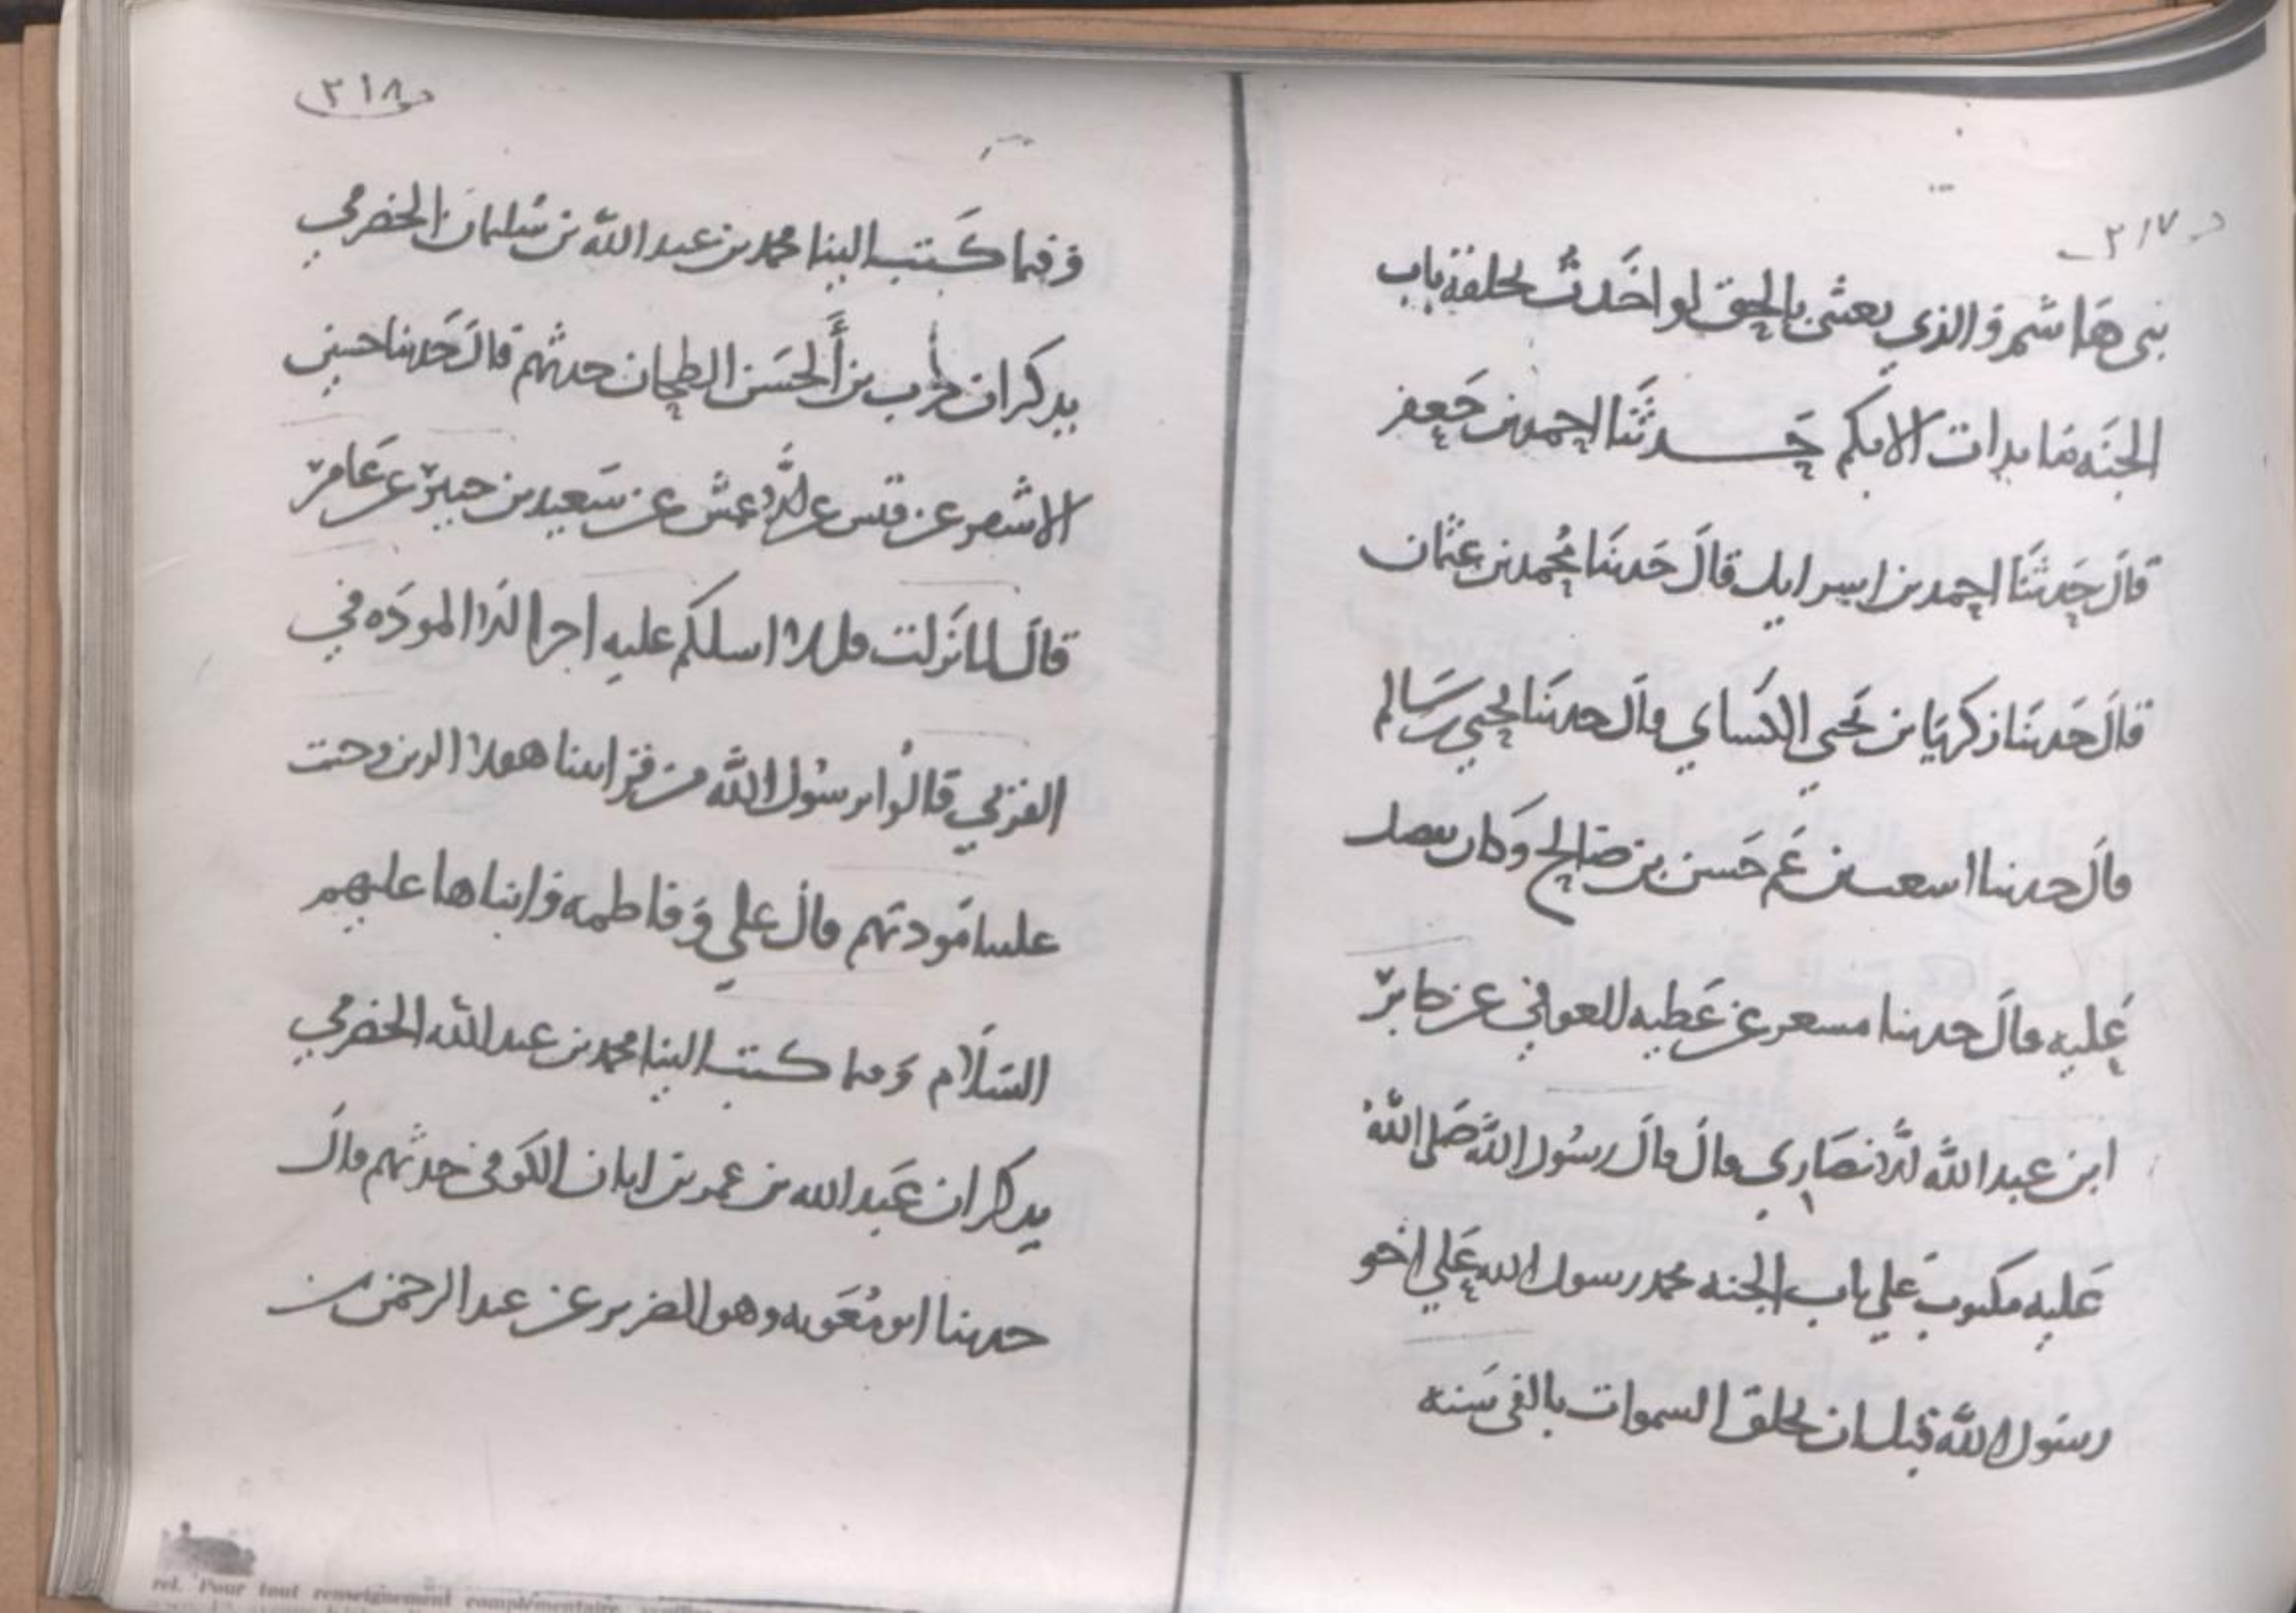 ٢١٧
بنى هاشم والذي بعثنى بالحق لو اخذت بحلقة باب
الجنه ما بدات الا بكم حدثنا احمد بن جعفر
قال حدثنا احمد بن اسرايل قال حدثنا محمد بن عثمان
قال حدثنا زكريا بن يحيى الكساي قال حدثنا يحيي بن سالم
قال حدثنا اسعث بن عم حسن بن صالح وكان يفضل
عليه قال حدثنا مسعر عن عطيه العوفي عن جابر
ابن عبد الله الانصاري قال قال رسول الله صلى الله
عليه مكتوب علي باب الجنه محمد رسول الله علي اخو
رسول الله قبل ان يخلق السموات بالفى سنه
٢١٨
وفيما كتب الينا محمد بن عبد الله بن سليمان الحضرمي
يذكر ان حرب بن الحسن الطحان حدثهم قال حدثنا حسين
الاشقر عن قيس عن الاعمش عن سعيد بن جبير عن عامر
قال لما نزلت قل لا اسلكم عليه اجرا الا المودة في
القربي قالوا يرسول الله من قرابتنا هولا الذين وجبت
علينا مودتهم قال علي وفاطمه وابناها عليهم
السلام وفيما كتب الينا محمد بن عبد الله الحضرمي
يذكر ان عبد الله بن عمر بن ابان الكوفى حدثهم قال
حدثنا ابو معويه وهو الضرير عن عبد الرحمن بن
rel. Pour tout renseignement complémentaire,